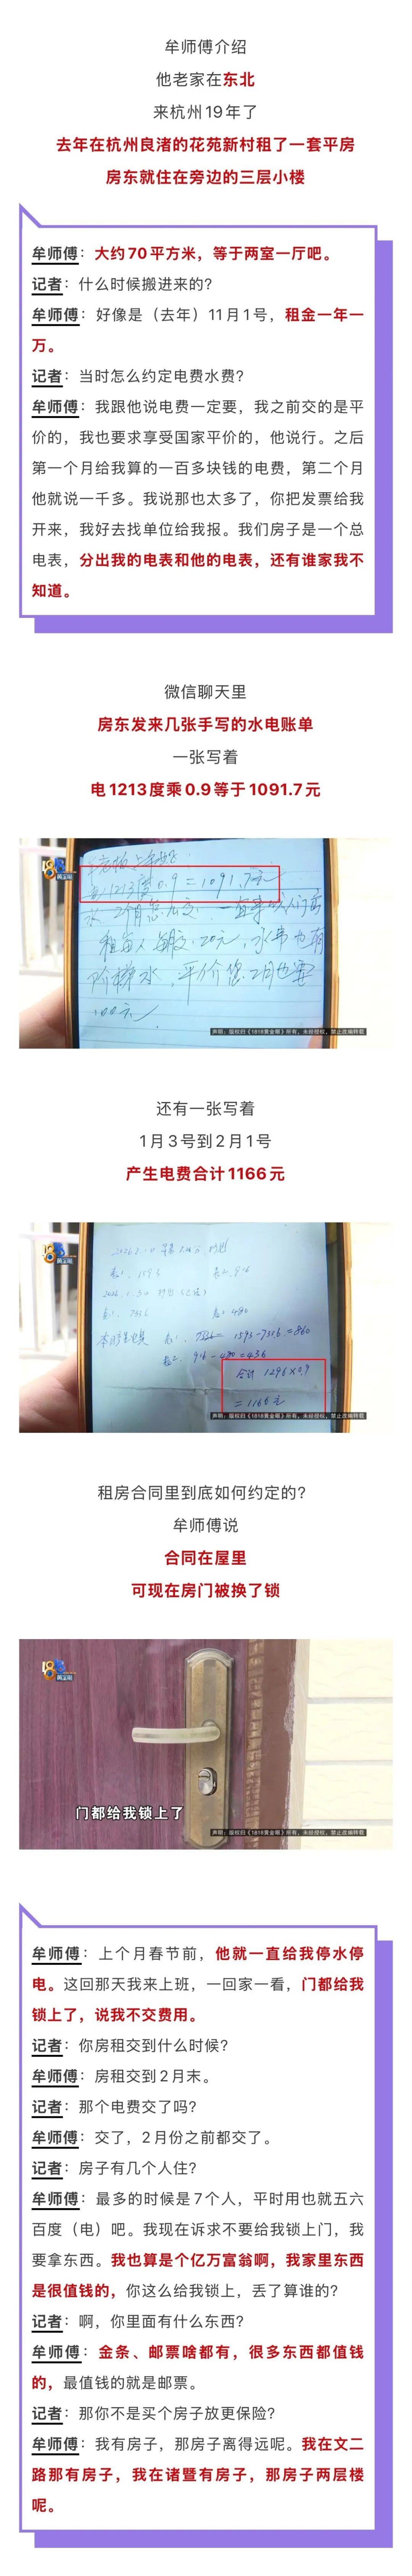 牟师傅介绍
他老家在东北
来杭州19年了
去年在杭州良渚的花苑新村租了一套平房
房东就住在旁边的三层小楼
牟师傅：大约70平方米，等于两室一厅吧。
记者：什么时候搬进来的？
牟师傅：好像是（去年）11月1号，租金一年一
万。
记者：当时怎么约定电费水费？
牟师傅：我跟他说电费一定要，我之前交的是平
价的，我也要求享受国家平价的，他说行。之后
第一个月给我算的一百多块钱的电费，第二个月
他就说一千多。我说那也太多了，你把发票给我
开来，我好去找单位给我报。我们房子是一个总
电表，分出我的电表和他的电表，还有谁家我不
知道。
微信聊天里
房东发来几张手写的水电账单
一张写着
电1213度乘0.9等于1091.7元
电1213度×0.9=1091.7元
租每人每月交20元，水费也有
阶梯水，平价您2月也要
100元
声明：版权归《1818黄金眼》所有，未经授权，禁止改编转载
还有一张写着
1月3号到2月1号
产生电费合计1166元
表1. 1593 表2. 916
表1. 7356 表2. 480
916-480=436
合计 1296×0.9
=1166元
声明：版权归《1818黄金眼》所有，未经授权，禁止改编转载
租房合同里到底如何约定的？
牟师傅说
合同在屋里
可现在房门被换了锁
黄金眼
门都给我锁上了
声明：版权归《1818黄金眼》所有，未经授权，禁止改编转载
牟师傅：上个月春节前，他就一直给我停水停
电。这回那天我来上班，一回家一看，门都给我
锁上了，说我不交费用。
记者：你房租交到什么时候？
牟师傅：房租交到2月末。
记者：那个电费交了吗？
牟师傅：交了，2月份之前都交了。
记者：房子有几个人住？
牟师傅：最多的时候是7个人，平时用也就五六
百度（电）吧。我现在诉求不要给我锁上门，我
要拿东西。我也算是个亿万富翁啊，我家里东西
是很值钱的，你这么给我锁上，丢了算谁的？
记者：啊，你里面有什么东西？
牟师傅：金条、邮票啥都有，很多东西都值钱
的，最值钱的就是邮票。
记者：那你不是买个房子放更保险？
牟师傅：我有房子，那房子离得远呢。我在文二
路那有房子，我在诸暨有房子，那房子两层楼
呢。